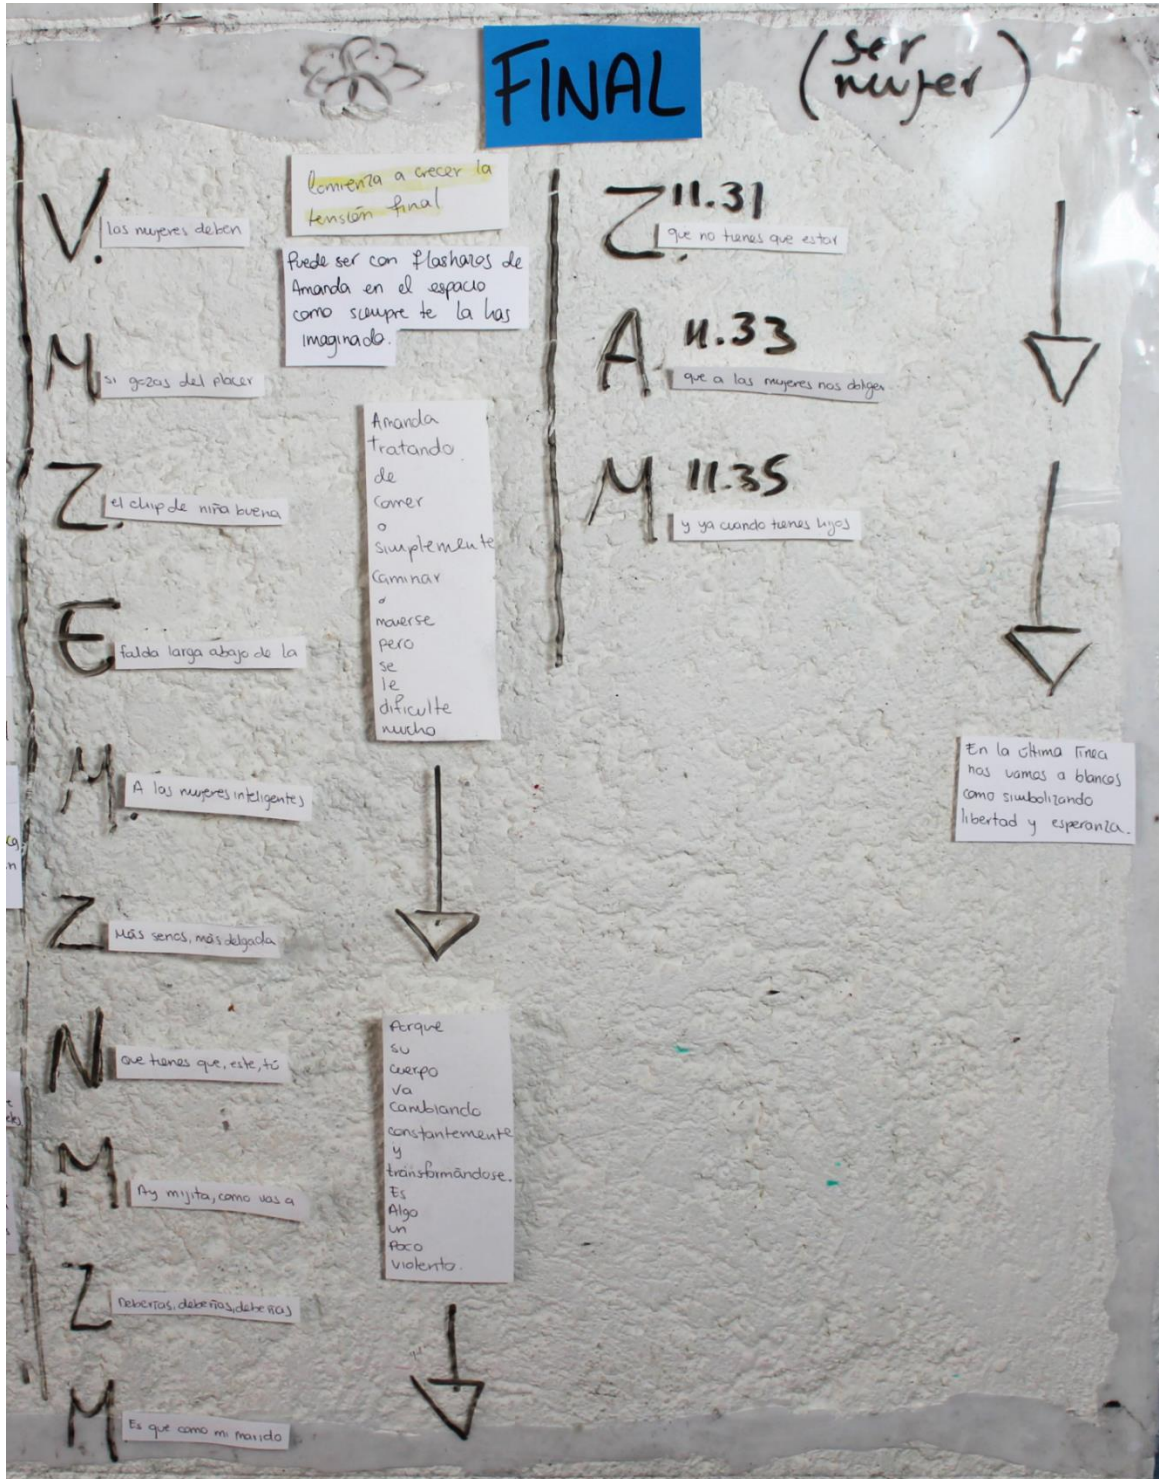 FINAL
(ser
mujer)
V.
las mujeres deben
M
si gozas del placer
Z.
el chip de niña buena
E
falda larga abajo de la
M.
A las mujeres inteligentes
Z
Más senos, más delgada
N
Que tienes que, este, tú
M
Ay mijita, como vas a
Z
Deberías, deberías, deberías
M
Es que como mi marido
Comienza a crecer la
tensión final
Puede ser con flashazos de
Amanda en el espacio
como siempre te la has
imaginado.
Amanda
tratando
de
comer
o
simplemente
caminar
o
moverse
pero
se
le
dificulte
mucho
Porque
su
cuerpo
va
cambiando
constantemente
y
transformándose.
Es
Algo
un
Poco
violento.
Z. 11.31
que no tienes que estar
A. 11.33
que a las mujeres nos
M 11.35
y ya cuando tienes hijos
En la última línea
nos vamos a blancos
como simbolizando
libertad y esperanza.